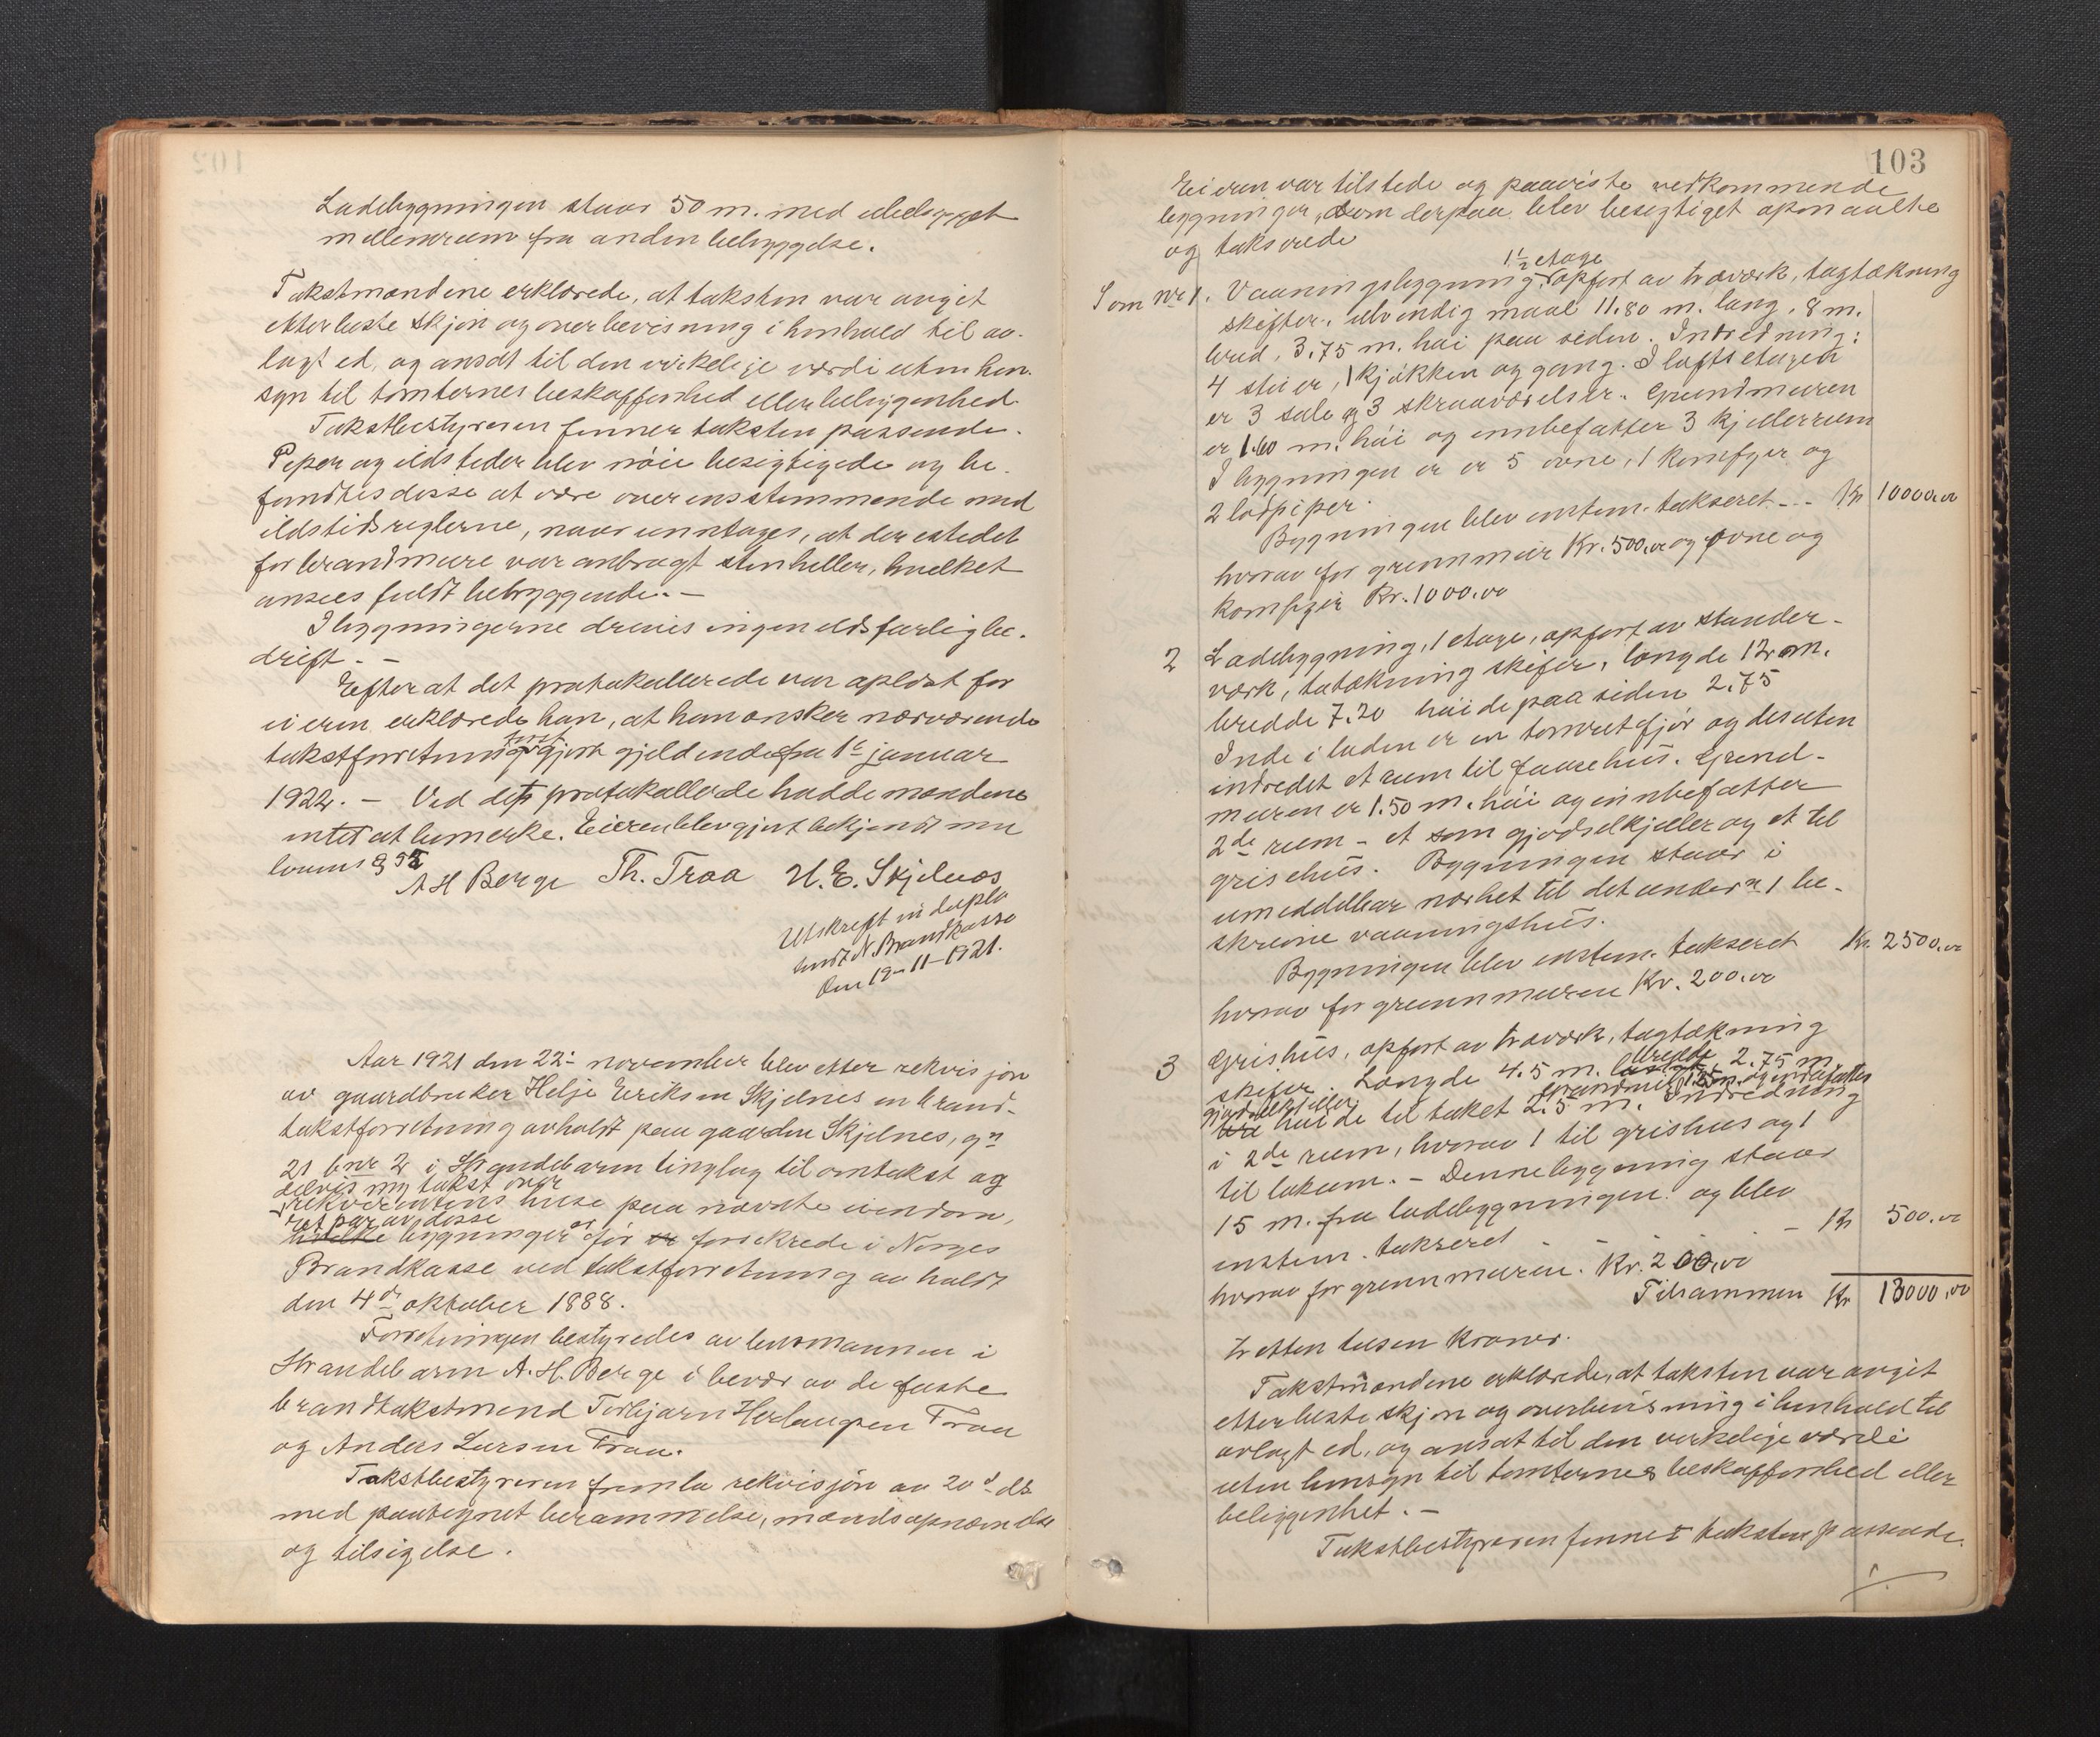 Ladebygningen staar 50 m. med ubebygget
mellemrum fra anden bebyggelse.
Takstmændene erklærede, at taksten var avgit
efter beste skjøn og overbevisning i henhold til av-
lagt ed, og ansat til den virkelige værdi uten hen-
syn til tomternes beskaffenhed eller beliggenhed.
Takstbestyreren finner taksten passende.
Piper og ildsteder blev nöie besigtigede og be-
fandtes disse at være overensstemmende med
ildstedsreglerne, naar unntages, at der istedet
for brandmure var anbragt stenheller, hvilket
ansees fuldt betryggende. -
I bygningerne drives ingen ildsfarlig be-
drift. -
Efter at det protokollerede var oplæst for
eieren erklærede han, at han ønsker nærværende
takstforretning först gjort gjeldende fra 1e januar
1922. - Ved det protokollerede hadde mændene
intet at bemerke. Eieren blev gjort bekjendt med
lovens § 52
A H Berge Th. Traa H. E. Skjelnes
Utskrift in duplo
sendt N. Brandkasse
den 19-11-1921.
Aar 1921 den 22: november blev efter rekvisjon
av gaardbruker Helje Eriksen Skjelnes en brand-
takstforretning avholdt paa gaarden Skjelnes, gn
21 bnr 2 i Strandebarm tinglag til omtakst og
delvis ny takst over
rekvirentens huse paa nævnte eiendom,
et par av disse
hvilke bygninger er för er forsikrede i Norges
Brandkasse ved takstforretning avholdt
den 4de oktober 1888.
Forretningen bestyredes av lensmannen i
Strandebarm A. H. Berge i bevær av de faste
brandtakstmend Torbjørn Herlaugsen Traa
og Anders Larsen Traa.
Takstbestyreren fremla rekvisjön av 20d ds
med paategnet berammelse, mændsopnævnelse
og tilsigelse.
103
Eieren var tilstede og paaviste vedkommende
bygninger, som derpaa blev besigtiget opmaalte
og takserede
1 1/2 etage
Som nr 1. Vaaningsbygning, opført av træværk, tagtækning
skifter. utvendig maal 11.80 m. lang, 8 m.
bred, 3.75 m. höi paa siden. Indredning:
4 stuer, 1 kjøkken og gang. I loftsetagen
er 3 sale og 3 skraaværelser. Grundmuren
er 1.60 m. höi og innbefatter 3 kjellerrum
I bygningen er er 5 ovne, 1 komfyr og
2 lodpiper.
Bygningen blev enstem. takseret - - - Kr 10000.00
hvorav for grunnmur Kr. 500.00 og ovne og
komfyr Kr. 1000.00
2 Ladebygning, 1 etage, opført av stender-
værk, taktækning skifer, længde 12 m.
bredde 7.20 höide paa siden 2.75
Inde i laden er en tømret fjös og desuten
indredet et rum til faarehus. Grund-
muren er 1.50 m. höi og innbefatter
2de rum - et som gjødselkjeller og et til
grisehus. Bygningen staar i
umiddelbar nærhet til det under nr 1 be-
skrevne vaaningshus.
Bygningen blev enstem. takseret Kr. 2500.00
hvorav for grunnmuren Kr. 200.00
3 Grishus, opført av træværk, tagtækning
skifer. Længde 4.5 m. bredde 2.75 m
Grundmur 1.25 m. og indbefatter
gjødselkjeller
höide til taket 2.5 m. Indredning
i 2de rum, hvorav 1 til grishus og 1
til lokum. - Denne bygning staar
15 m. fra ladebygningen. og blev
enstem. takseret - - - Kr 500.00
hvorav for grunnmuren. Kr. 200.00
Tilsammen Kr 13000.00
Tretten tusen kroner.
Takstmændene erklærede, at taksten var avgit
etter beste skjøn og overbevisning i henhold til
avlagt ed, og ansat til den virkelige værdi
uten hensyn til tomternes beskaffenhed eller
beliggenhet. -
Takstbestyreren finner taksten passende.